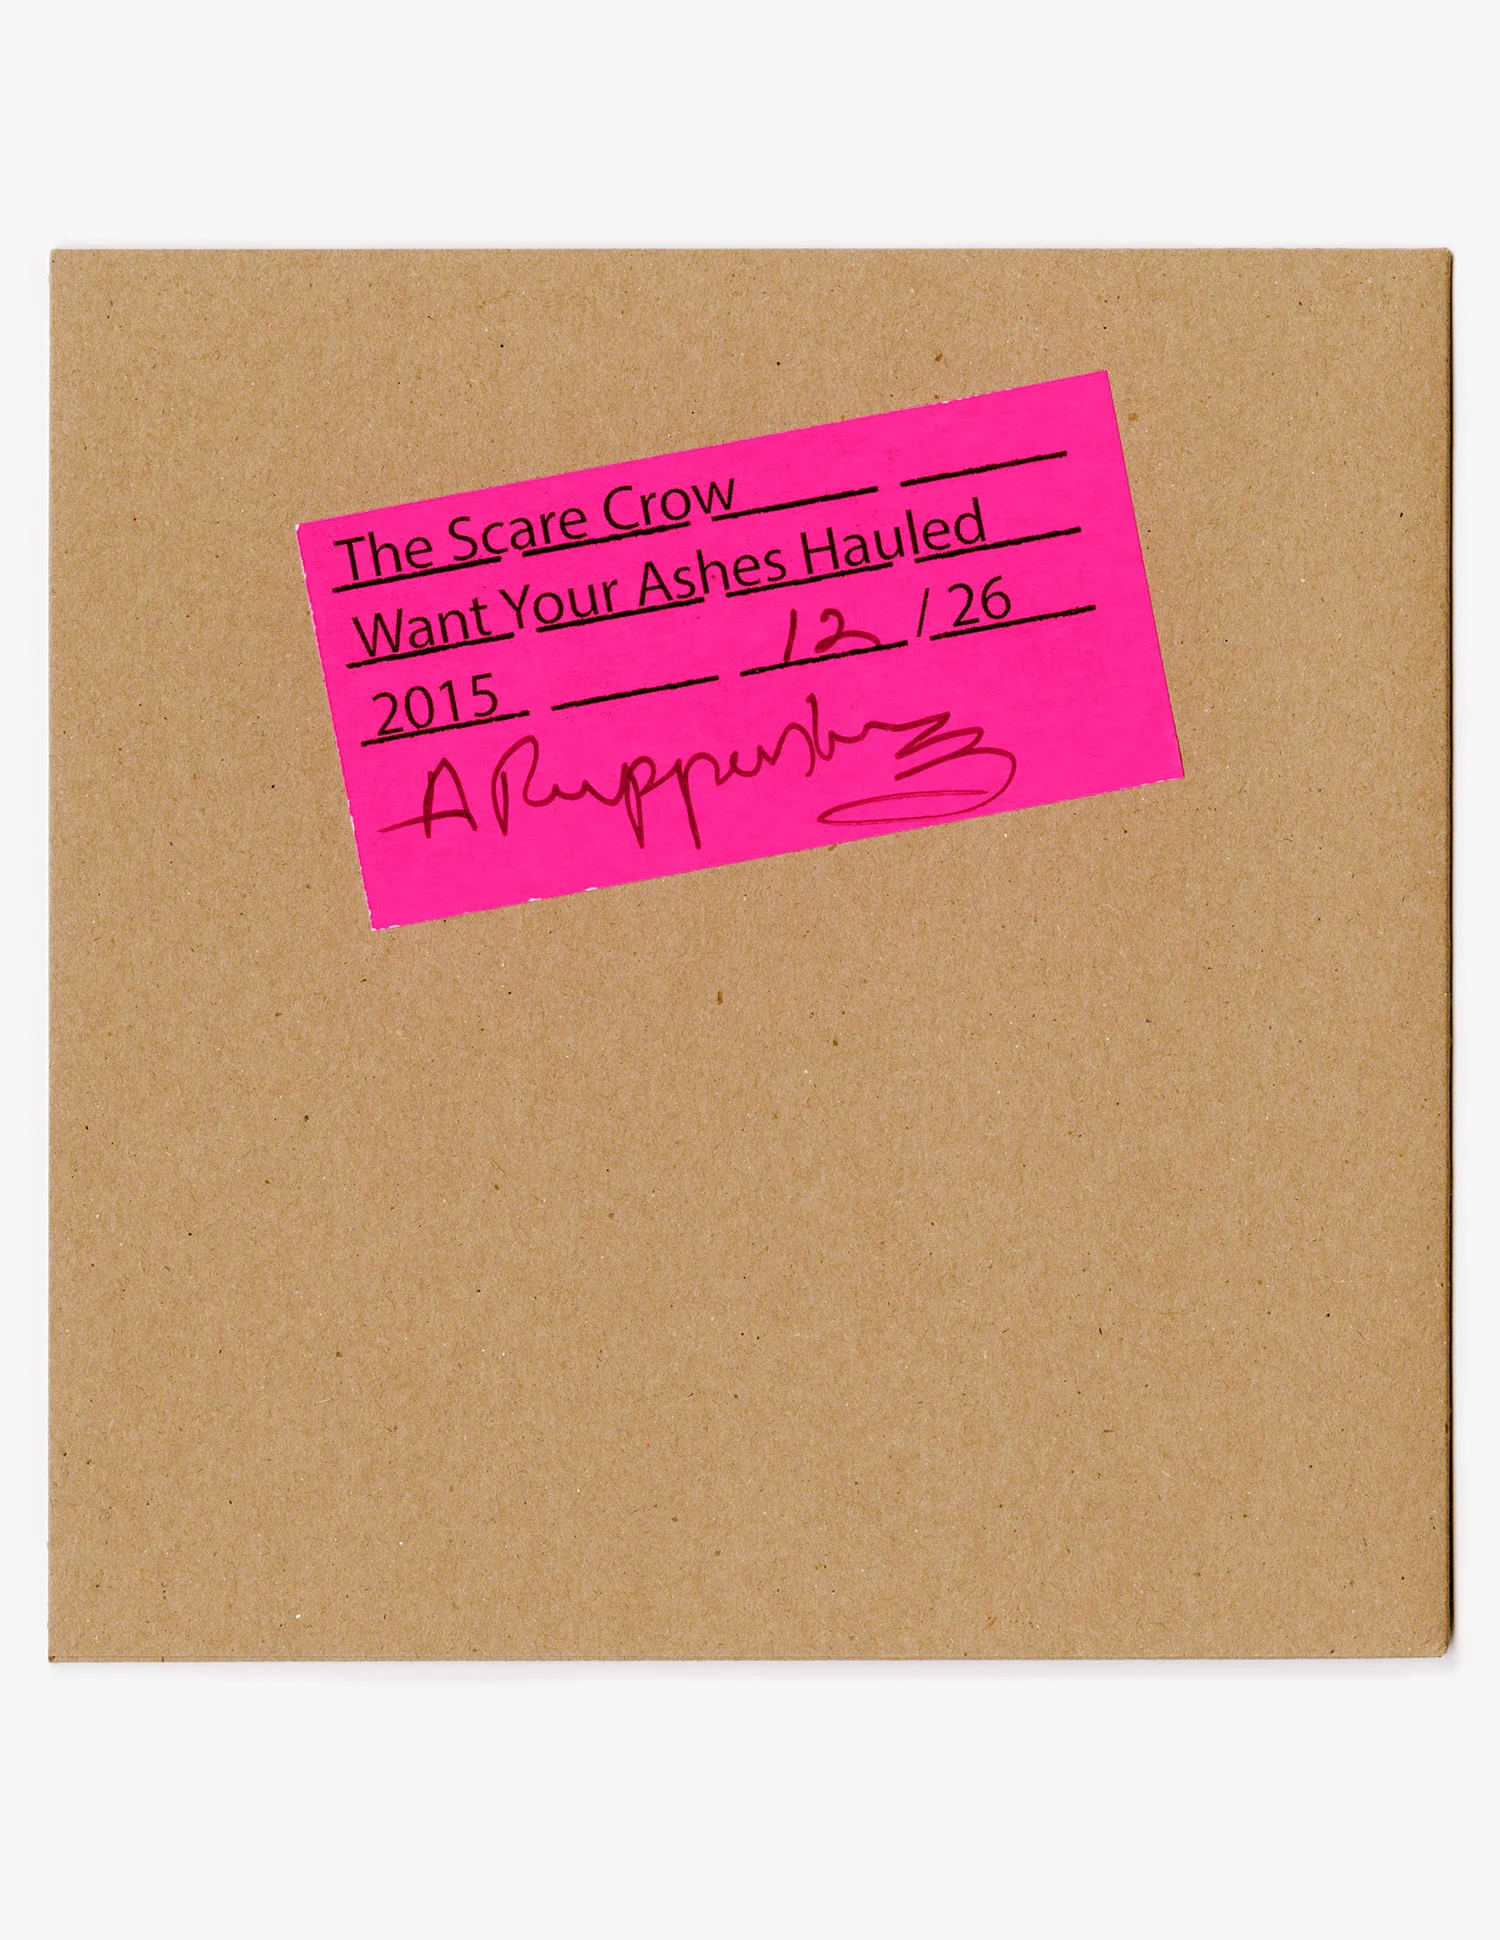 The Scare Crow
Want Your Ashes Hauled
2015 12 / 26
A Ruppersberg